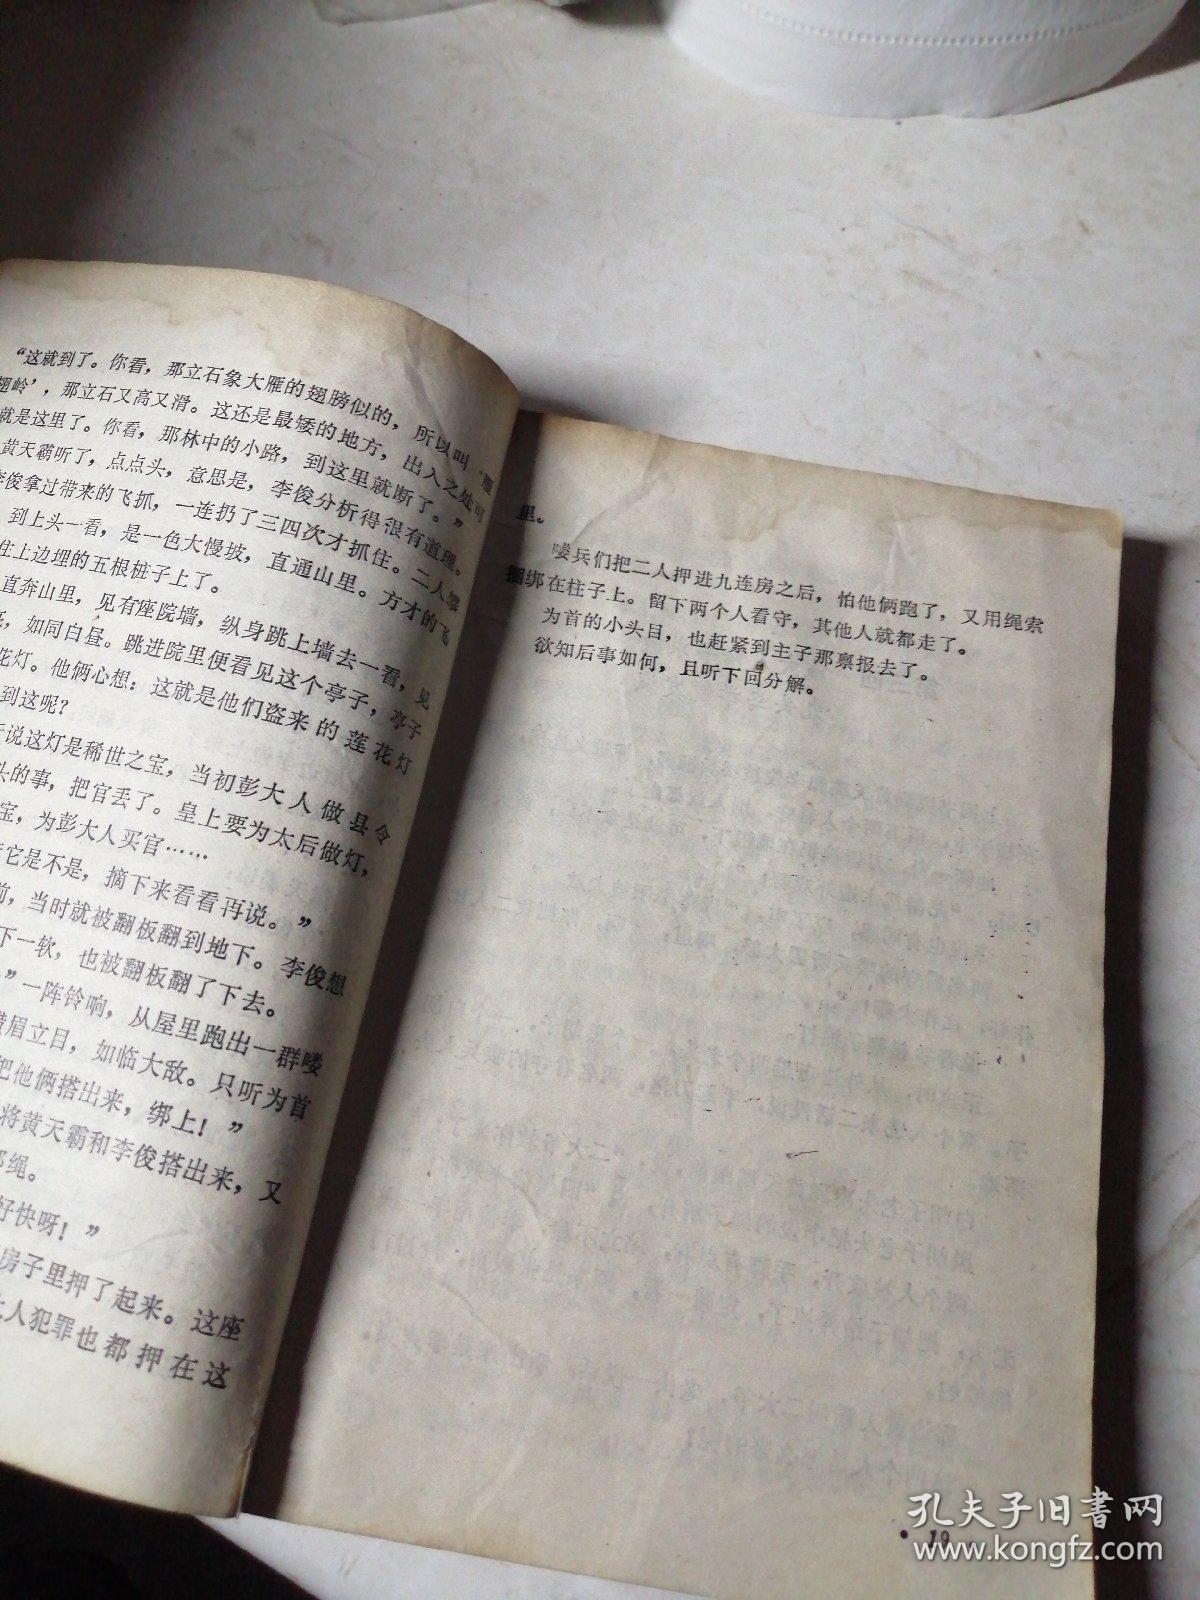 “这就到了。你看，那立石象大雁的翅膀似的，所以叫‘雁
翅岭’，那立石又高又滑。这还是最矮的地方，出入之处可
就是这里了。你看，那林中的小路，到这里就断了。”
黄天霸听了，点点头，意思是，李俊分析得很有道理。
李俊拿过带来的飞抓，一连扔了三四次才抓住。二人攀
到上头一看，是一色大慢坡，直通山里。方才的飞
住上边埋的五根桩子上了。
直奔山里，见有座院墙，纵身跳上墙去一看，见
，如同白昼。跳进院里便看见这个亭子，亭子
花灯。他俩心想：这就是他们盗来的莲花灯
到这呢？
说这灯是稀世之宝，当初彭大人做县令
头的事，把官丢了。皇上要为太后做灯，
宝，为彭大人买官……
它是不是，摘下来看看再说。”
前，当时就被翻板翻到地下。李俊想
下一软，也被翻板翻了下去。
”一阵铃响，从屋里跑出一群喽
横眉立目，如临大敌。只听为首
把他俩搭出来，绑上！”
将黄天霸和李俊搭出来，又
绳。
好快呀！”
房子里押了起来。这座
人犯罪也都押在这
里。
喽兵们把二人押进九连房之后，怕他俩跑了，又用绳索
捆绑在柱子上。留下两个人看守，其他人就都走了。
为首的小头目，也赶紧到主子那禀报去了。
欲知后事如何，且听下回分解。
• 19
孔夫子旧书网
www.kongfz.com